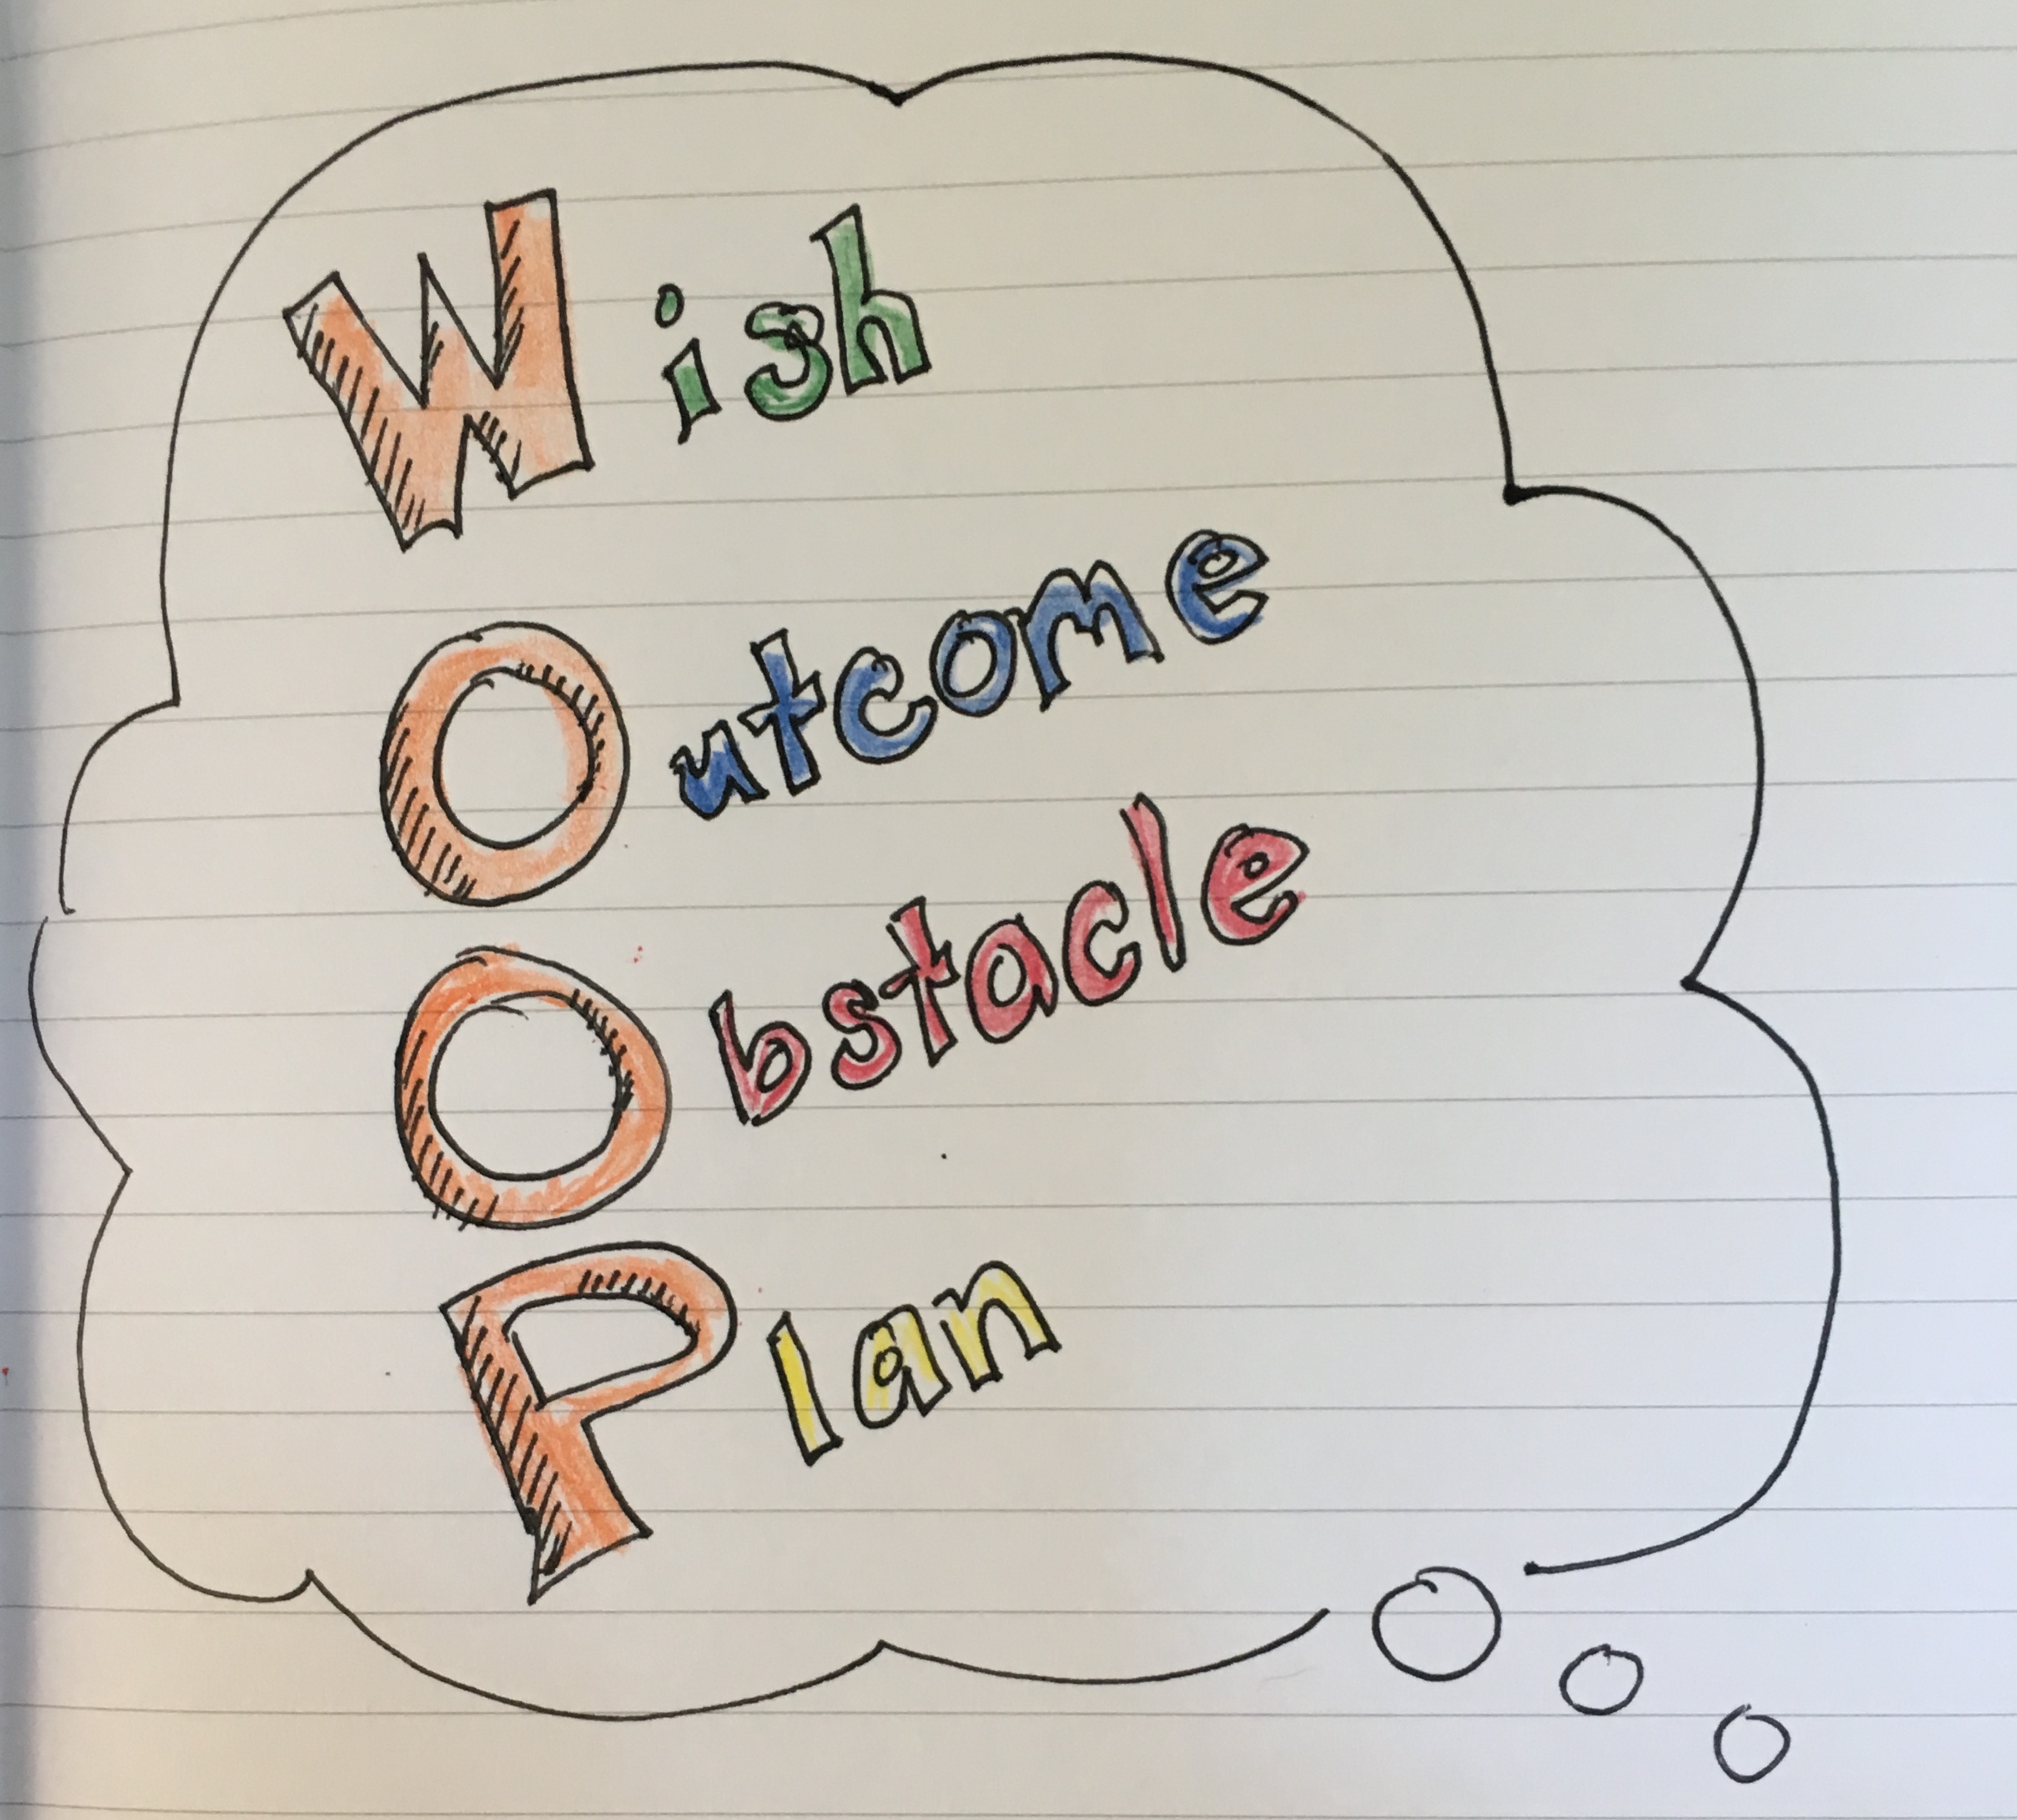 Wish
Outcome
Obstacle
Plan